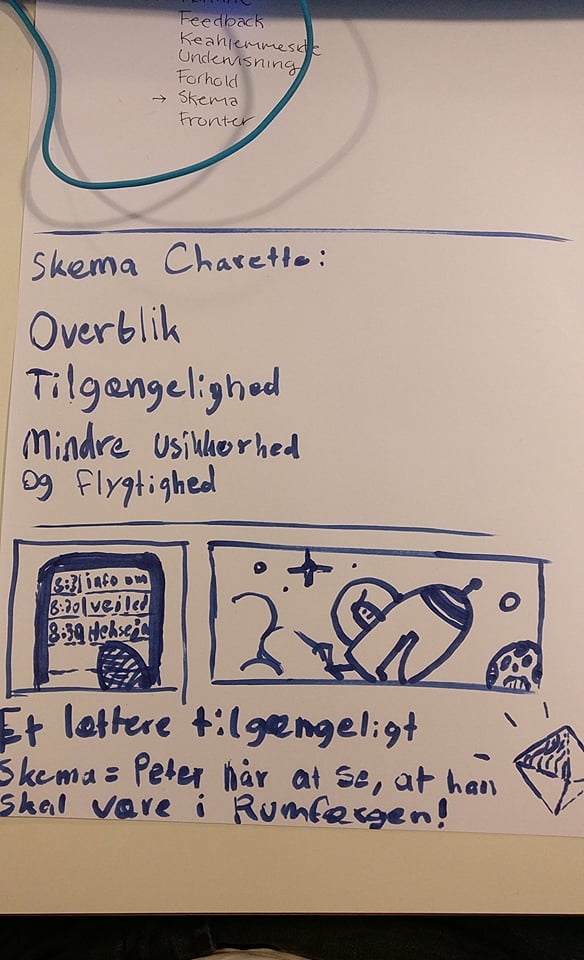 Feedback
Undervisning
Forhold
→ Skema
Fronter
Skema Charette:
Overblik
Tilgængelighed
Mindre usikkerhed
og flygtighed
8:31 info om
8:30
8:30
Et lettere tilgængeligt
Skema = Peter når at se, at han
Skal være i Rumfærgen!